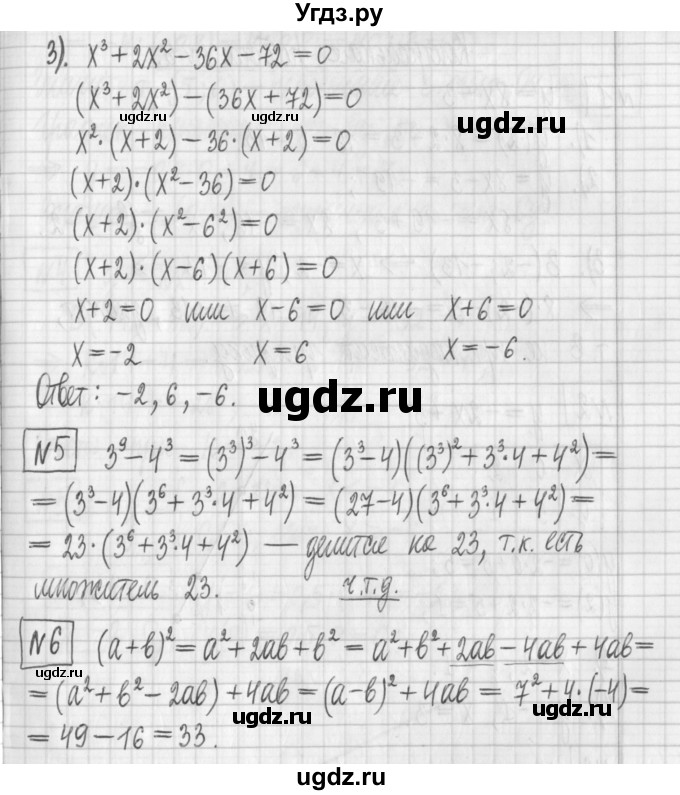 Угдз.ру
3). x³ + 2x² − 36x − 72 = 0
(x³ + 2x²) − (36x + 72) = 0
ugdz.ru
x² · (x + 2) − 36 · (x + 2) = 0
(x + 2) · (x² − 36) = 0
ugdz.ru
(x + 2) · (x² − 6²) = 0
(x + 2) · (x − 6)(x + 6) = 0
x + 2 = 0 или x − 6 = 0 или x + 6 = 0
x = −2 x = 6 x = −6.
Ответ: −2, 6, −6.
ugdz.ru
ugdz.ru
№5 3⁹ − 4³ = (3³)³ − 4³ = (3³ − 4)((3³)² + 3³·4 + 4²) =
= (3³ − 4)(3⁶ + 3³·4 + 4²) = (27 − 4)(3⁶ + 3³·4 + 4²) =
= 23 · (3⁶ + 3³·4 + 4²) — делится на 23, т.к. есть
множитель 23. ч.т.д.
ugdz.ru
ugdz.ru
№6 (a + b)² = a² + 2ab + b² = a² + b² + 2ab − 4ab + 4ab =
= (a² + b² − 2ab) + 4ab = (a − b)² + 4ab = 7² + 4 · (−4) =
ugdz.ru
= 49 − 16 = 33.
ugdz.ru